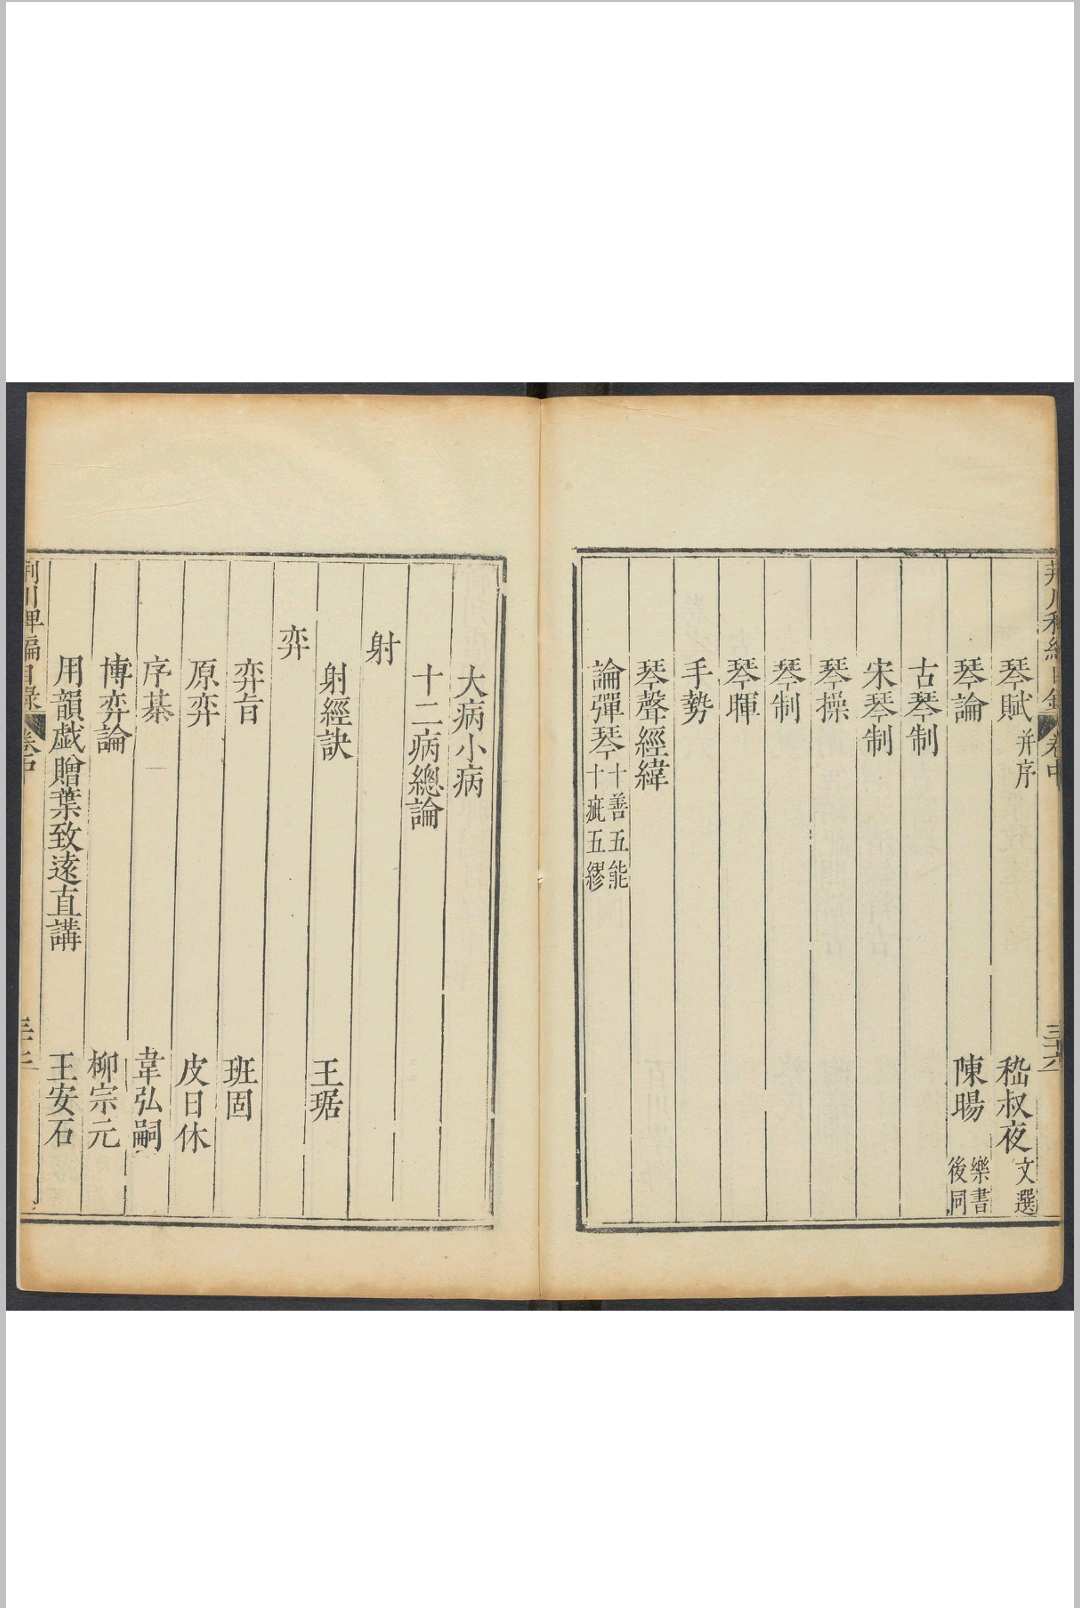 荆川稗編目錄 卷中 三十六
琴賦 并序 嵇叔夜 文選
琴論 陳暘 樂書後同
古琴制
宋琴制
琴操
琴制
琴暉
手勢
琴聲經緯
論彈琴 十善五能十疵五繆
大病小病
十二病總論
射
射經訣 王琚
弈
弈旨 班固
原弈 皮日休
序棊 韋弘嗣
博弈論 柳宗元
用韻戯贈葉致遠直講 王安石
荆川稗編目錄 卷中